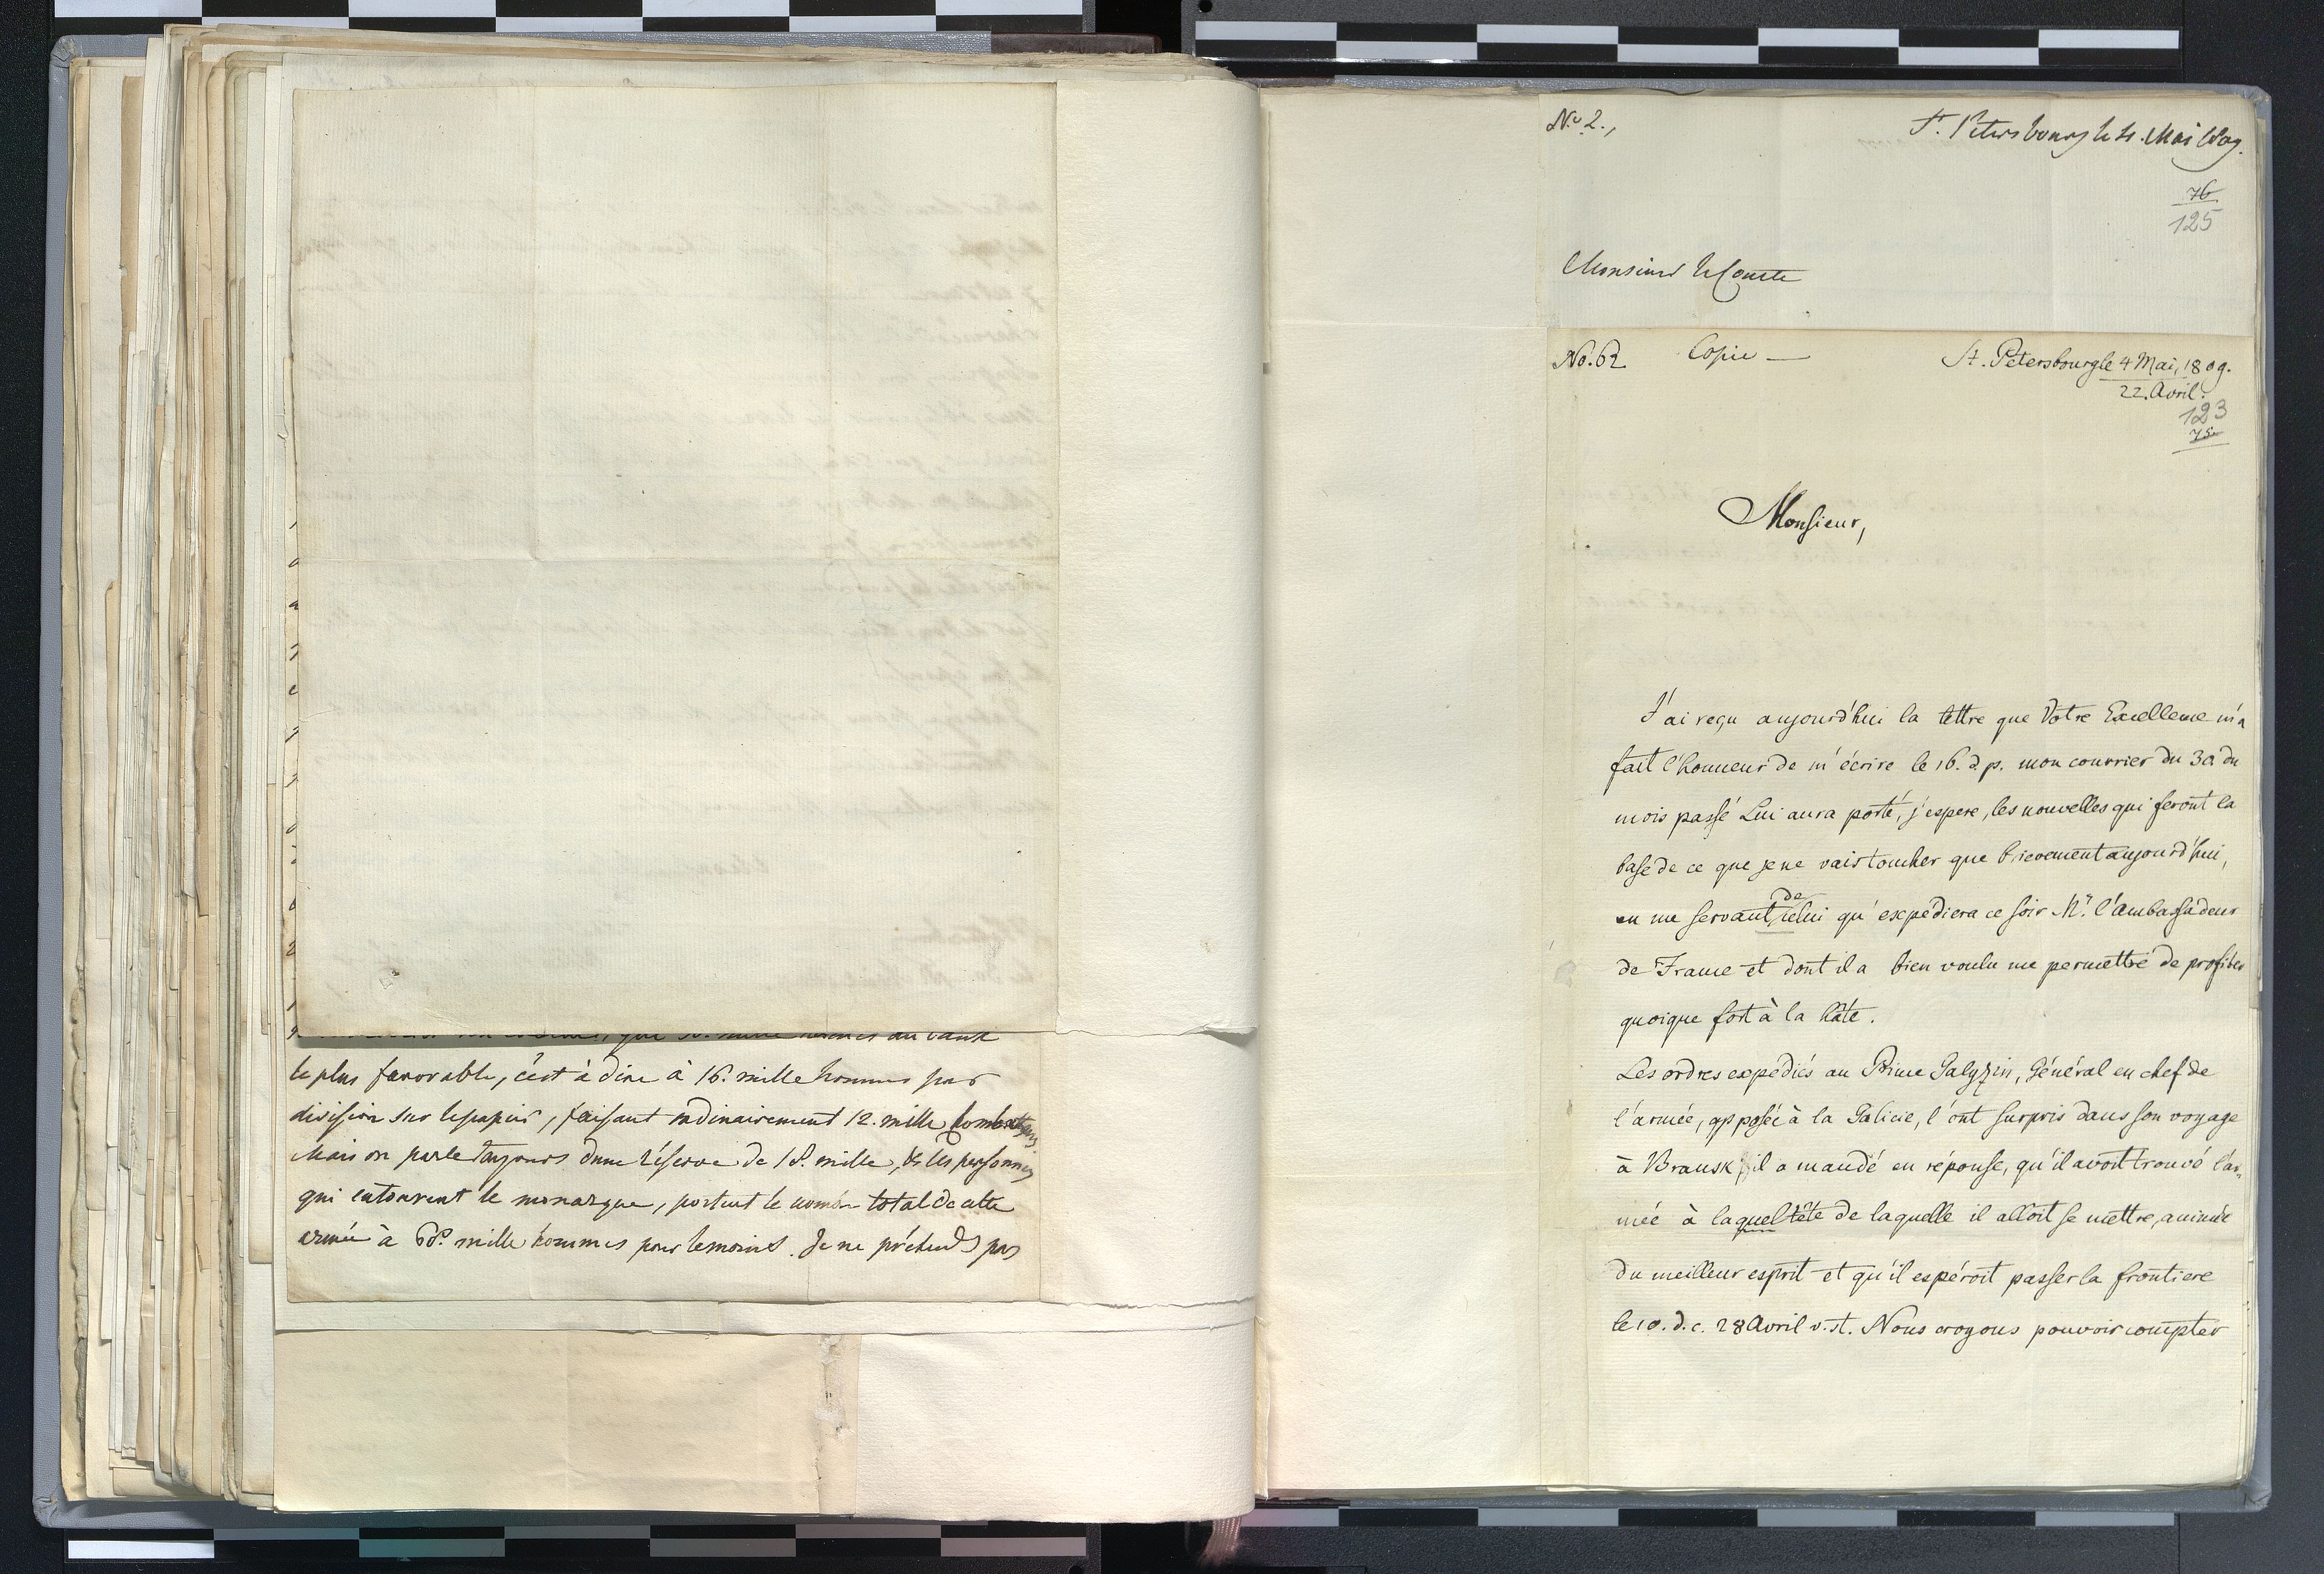 le plus favorable, c'est à dire à 16. mille hommes par
division sur le papier, faisant ordinairement 12. mille combattans
Mais on parle toujours d'une réserve de 18. mille, & les personnes
qui entourent le monarque, portent le nombre total de cette
armée à 60. mille hommes pour le moins. Je ne prétends pas
No. 2.,
St. Petersbourg le 4. Mai 1809.
76
125
Monsieur le Comte
No. 62 Copie —
St. Petersbourg le 4 Mai, 1809.
22. Avril.
123
75
Monsieur,
J'ai reçu aujourd'hui la lettre que Votre Excellence m'a
fait l'honneur de m'écrire le 16. d. p. mon courrier du 30 du
mois passé Lui aura porté, j'espere, les nouvelles qui feront la
base de ce que je ne vais toucher que brievement aujourd'hui,
en me servant de celui qu'expédiera ce soir Mr. l'Ambassadeur
de France et dont il a bien voulu me permettre de profiter
quoique fort à la hâte.
Les ordres expédiés au Prince Galyzin, Général en chef de
l'armée, opposée à la Galicie, l'ont surpris dans son voyage
à Bransk, il a mandé en réponse, qu'il avoit trouvé l'ar-
mée à la quel tête de laquelle il alloit se mettre, animée
du meilleur esprit et qu'il espéroit passer la frontiere
le 10. d. c. 28 Avril v. st. Nous croyons pouvoir compter